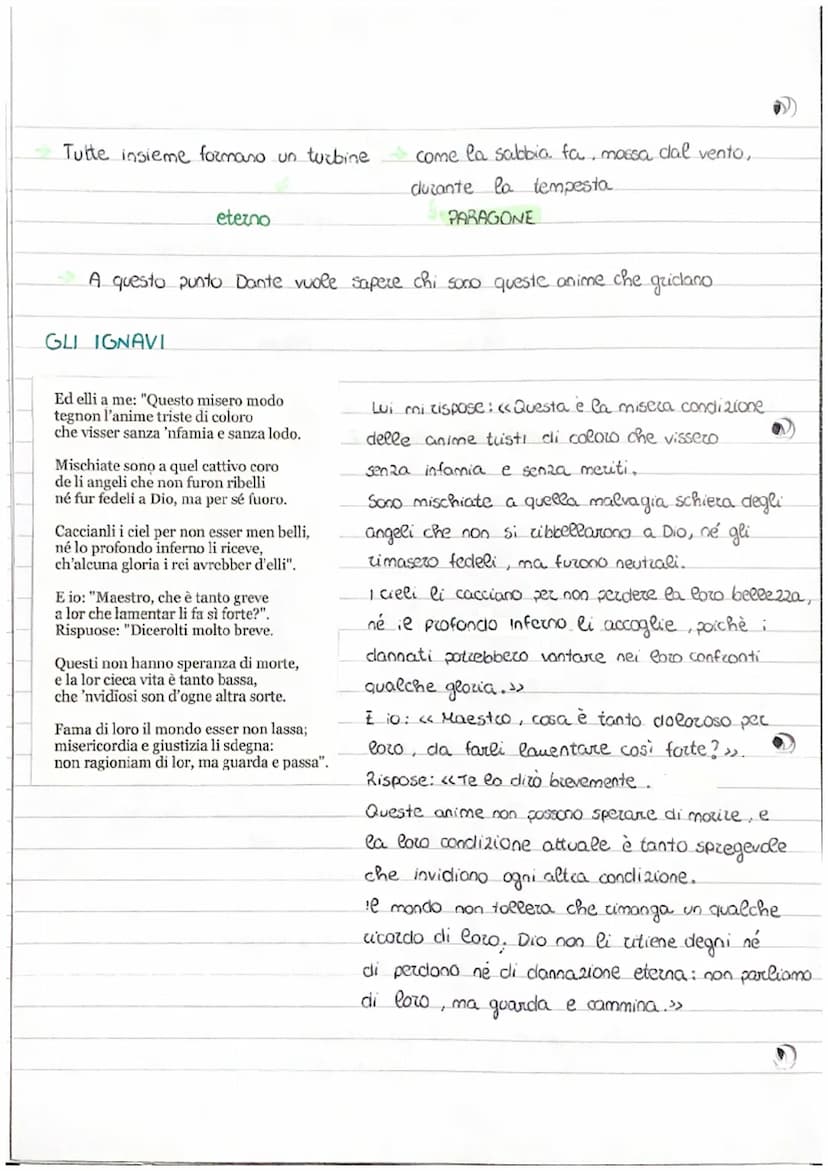 → Tutte insieme formano un turbine → come la sabbia fa, mossa dal vento,
durante la tempesta
eterno PARAGONE
→ A questo punto Dante vuole sapere chi sono queste anime che gridano
GLI IGNAVI
Ed elli a me: "Questo misero modo
tegnon l'anime triste di coloro
che visser sanza 'nfamia e sanza lodo.
Mischiate sono a quel cattivo coro
de li angeli che non furon ribelli
né fur fedeli a Dio, ma per sé fuoro.
Caccianli i ciel per non esser men belli,
né lo profondo inferno li riceve,
ch'alcuna gloria i rei avrebber d'elli".
E io: "Maestro, che è tanto greve
a lor che lamentar li fa sì forte?".
Rispuose: "Dicerolti molto breve.
Questi non hanno speranza di morte,
e la lor cieca vita è tanto bassa,
che 'nvidïosi son d'ogne altra sorte.
Fama di loro il mondo esser non lassa;
misericordia e giustizia li sdegna:
non ragioniam di lor, ma guarda e passa".
Lui mi rispose: «Questa è la misera condizione
delle anime tristi di coloro che vissero
senza infamia e senza meriti.
Sono mischiate a quella malvagia schiera degli
angeli che non si ribbellarono a Dio, né gli
rimasero fedeli, ma furono neutrali.
I cieli li cacciano per non perdere la loro bellezza,
né il profondo inferno li accoglie, poichè i
dannati potrebbero vantare nei loro confronti
qualche gloria.»
E io: «Maestro, cosa è tanto doloroso per
loro, da farli lamentare così forte?».
Rispose: «Te lo dirò brevemente.
Queste anime non possono sperare di morire, e
la loro condizione attuale è tanto spregevole
che invidiono ogni altra condizione.
Il mondo non tollera che rimanga un qualche
ricordo di loro. Dio non li ritiene degni né
di perdono né di dannazione eterna: non parliamo
di loro, ma guarda e cammina.»